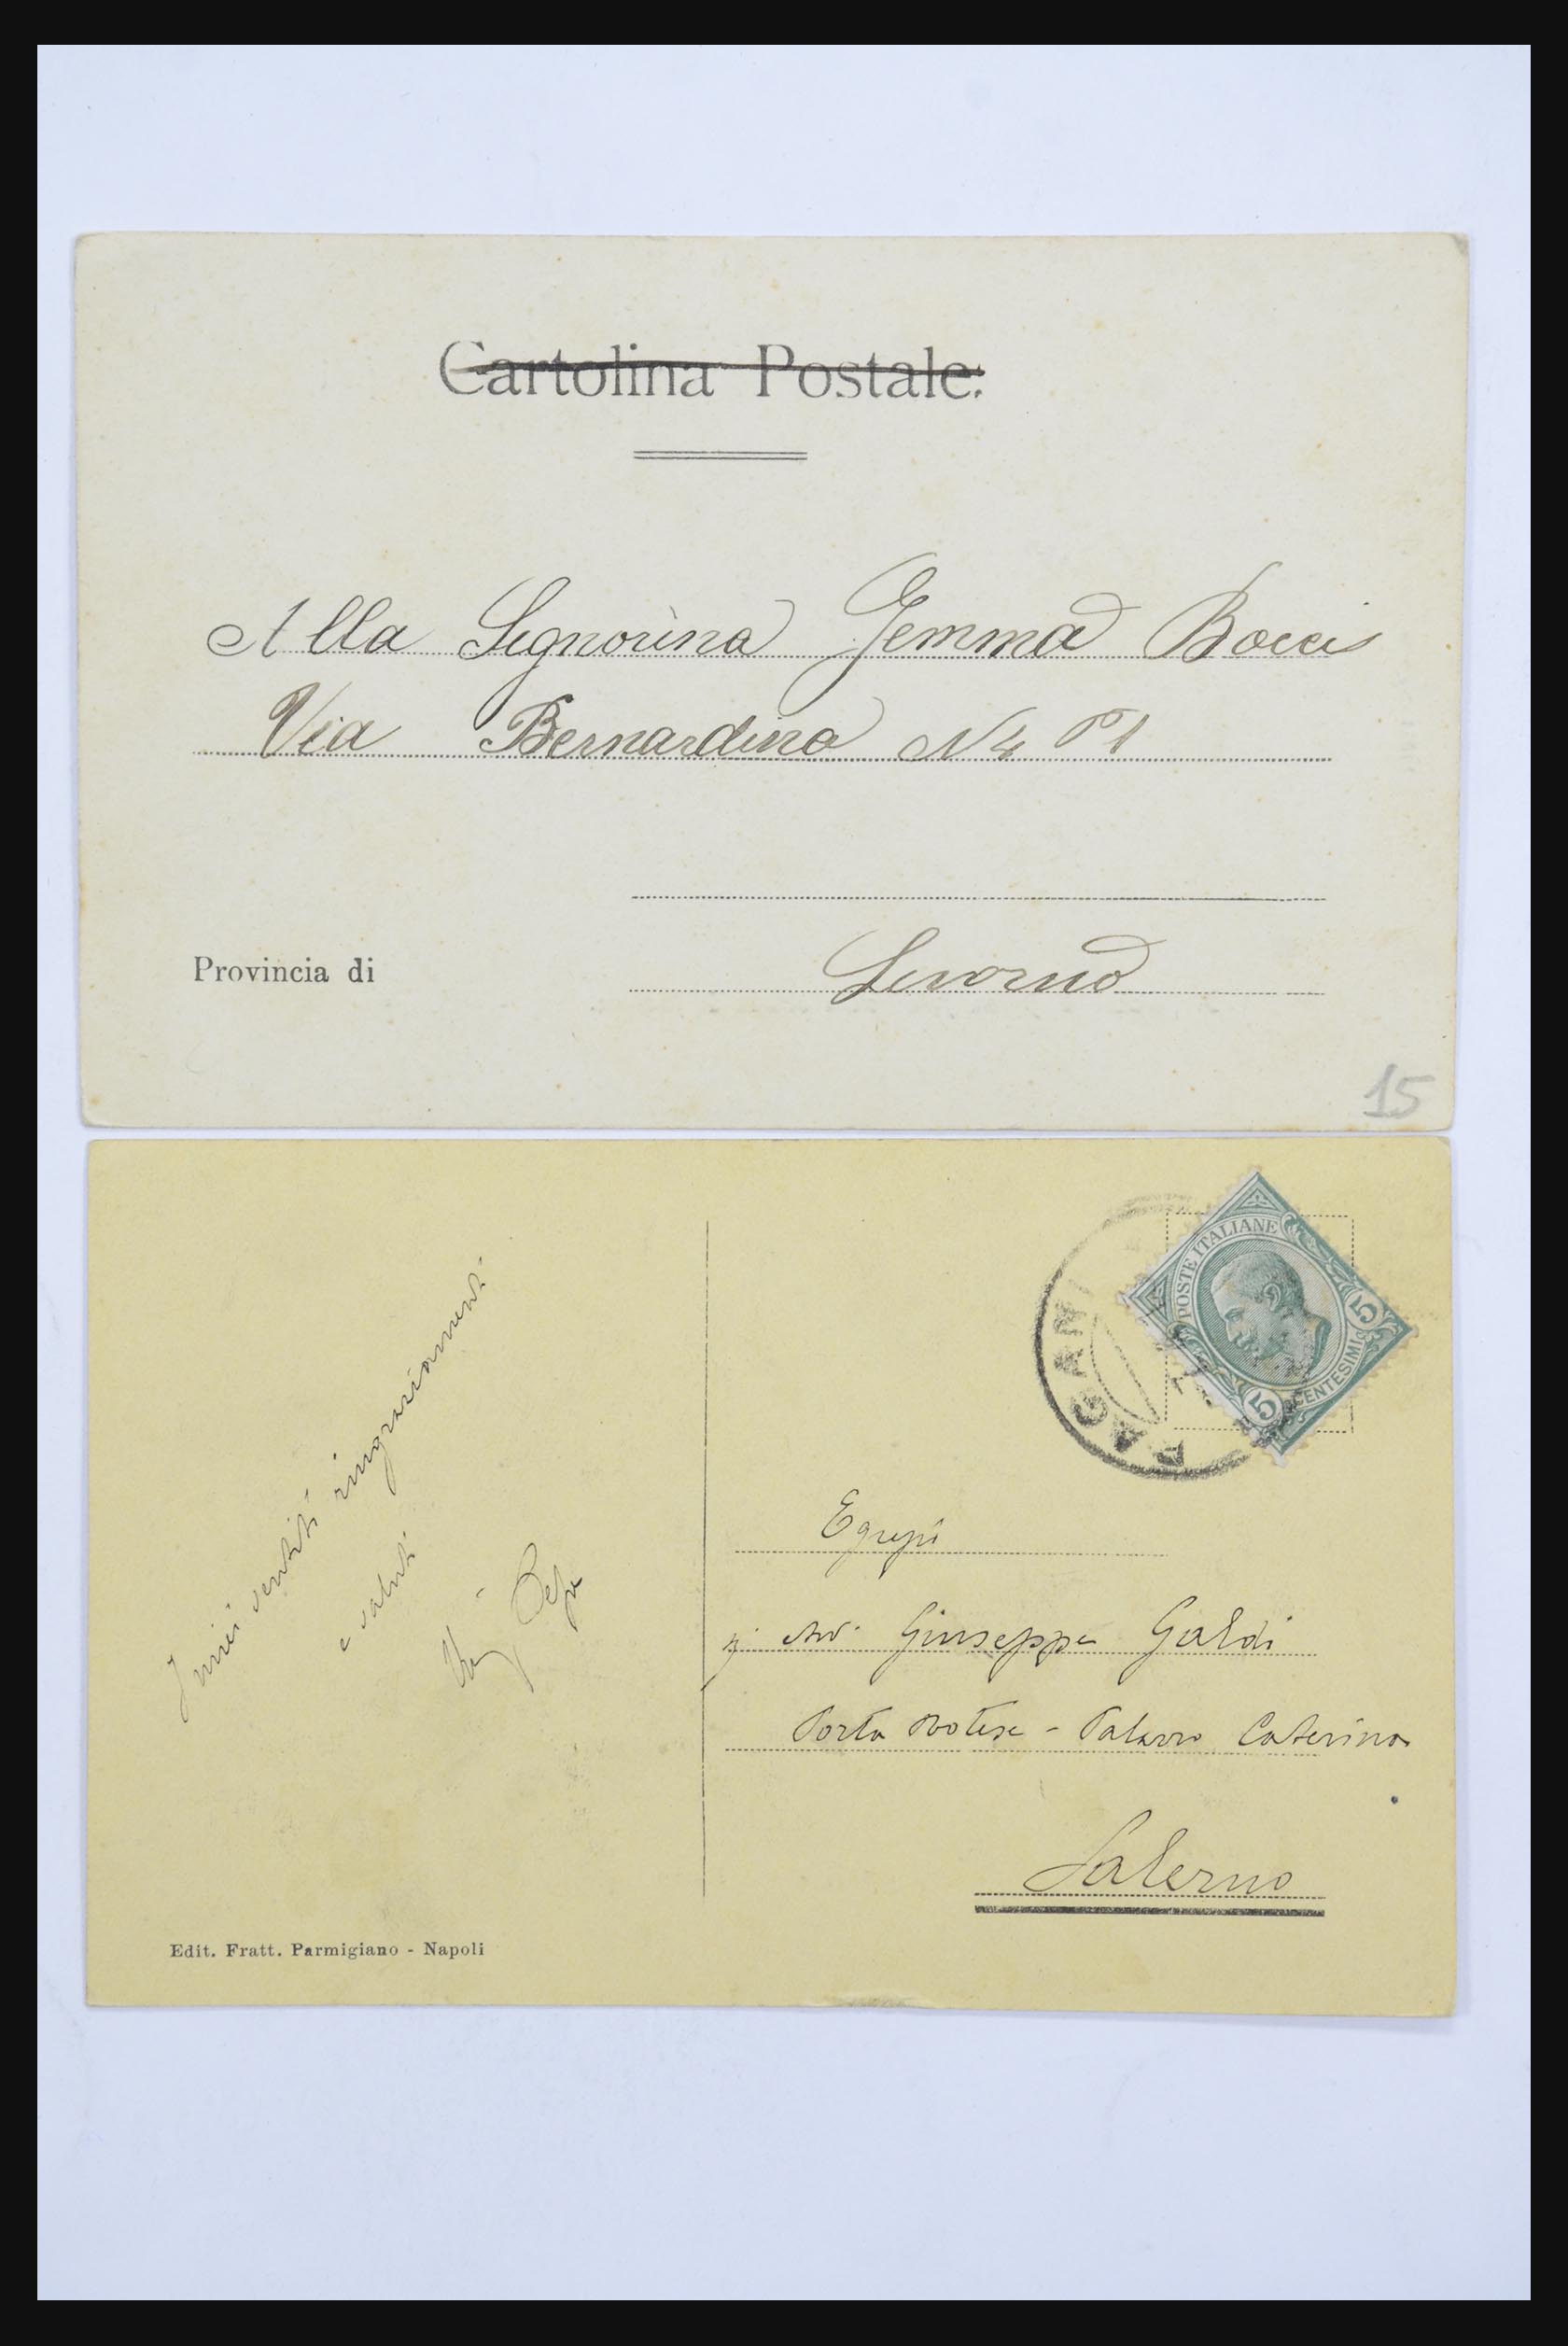 Cartolina Postale.
Alla Signorina Gemma Bocci
Via Bernardina N4 P1
Provincia di
Livorno
15
POSTE ITALIANE
5
5
CENTESIMI
PAGANI
I miei sentiti ringraziamenti
e saluti
Pepe
Egregio
Avv. Giuseppe Galdi
Porta Rotese - Palazzo Caterina
Salerno
Edit. Fratt. Parmigiano - Napoli